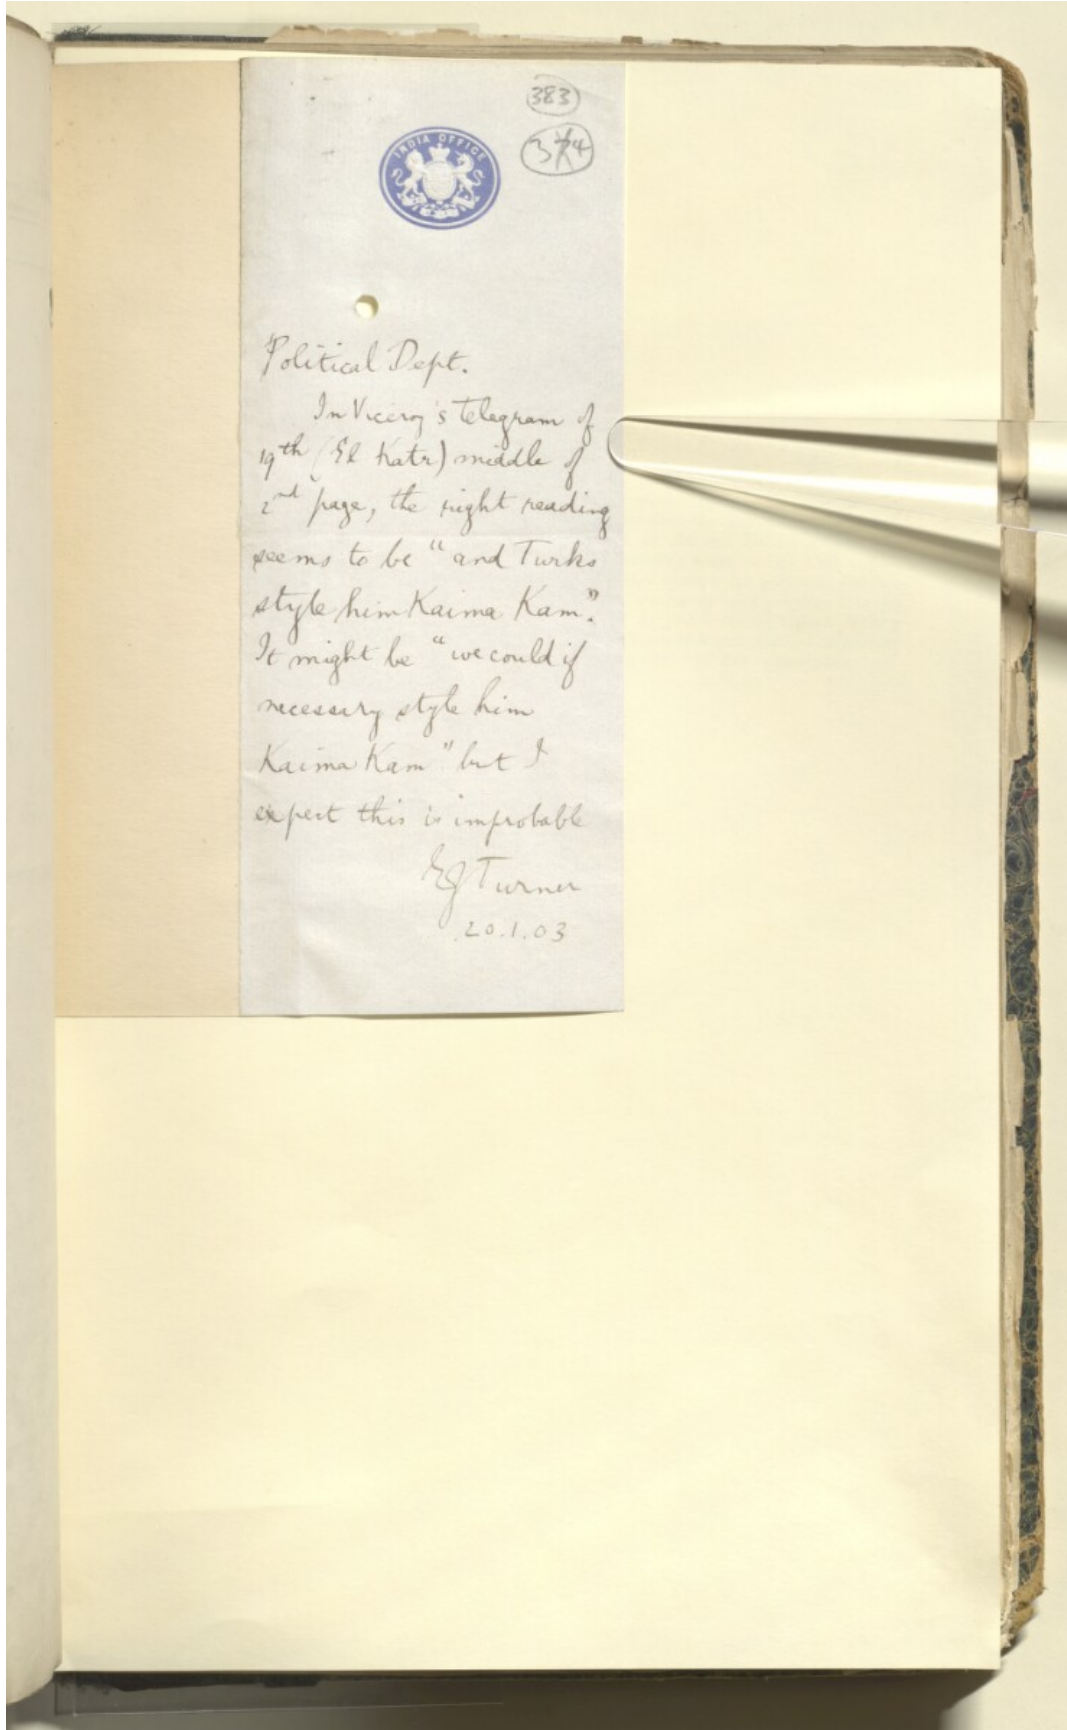 383
374
INDIA OFFICE
Political Dept.
In Viceroy's telegram of
19th (El Katr) middle of
2nd page, the right reading
seems to be "and Turks
style him Kaima Kam".
It might be "we could if
necessary style him
Kaima Kam" but I
expect this is improbable
EJ Turner
20.1.03